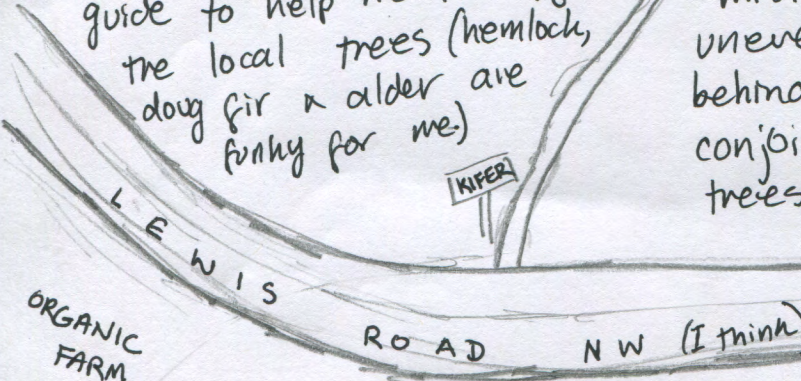 guide to help
the local trees (hemlock,
doug fir & alder are
funky for me)
KIFER
behind
trees
LEWIS ROAD NW (I think)
ORGANIC
FARM